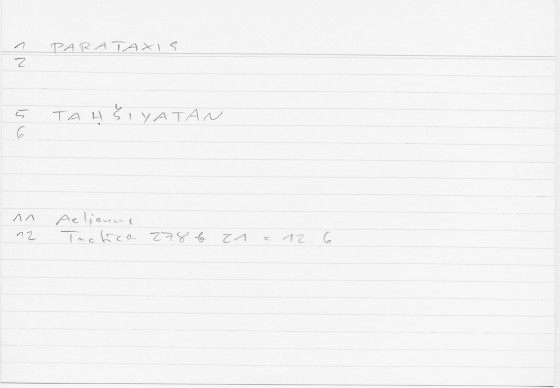 1 PARATAXIS
2
5 TAḤŠIYATAN
6
11 Aelianus
12 Tactica 278b 21 = 12.6